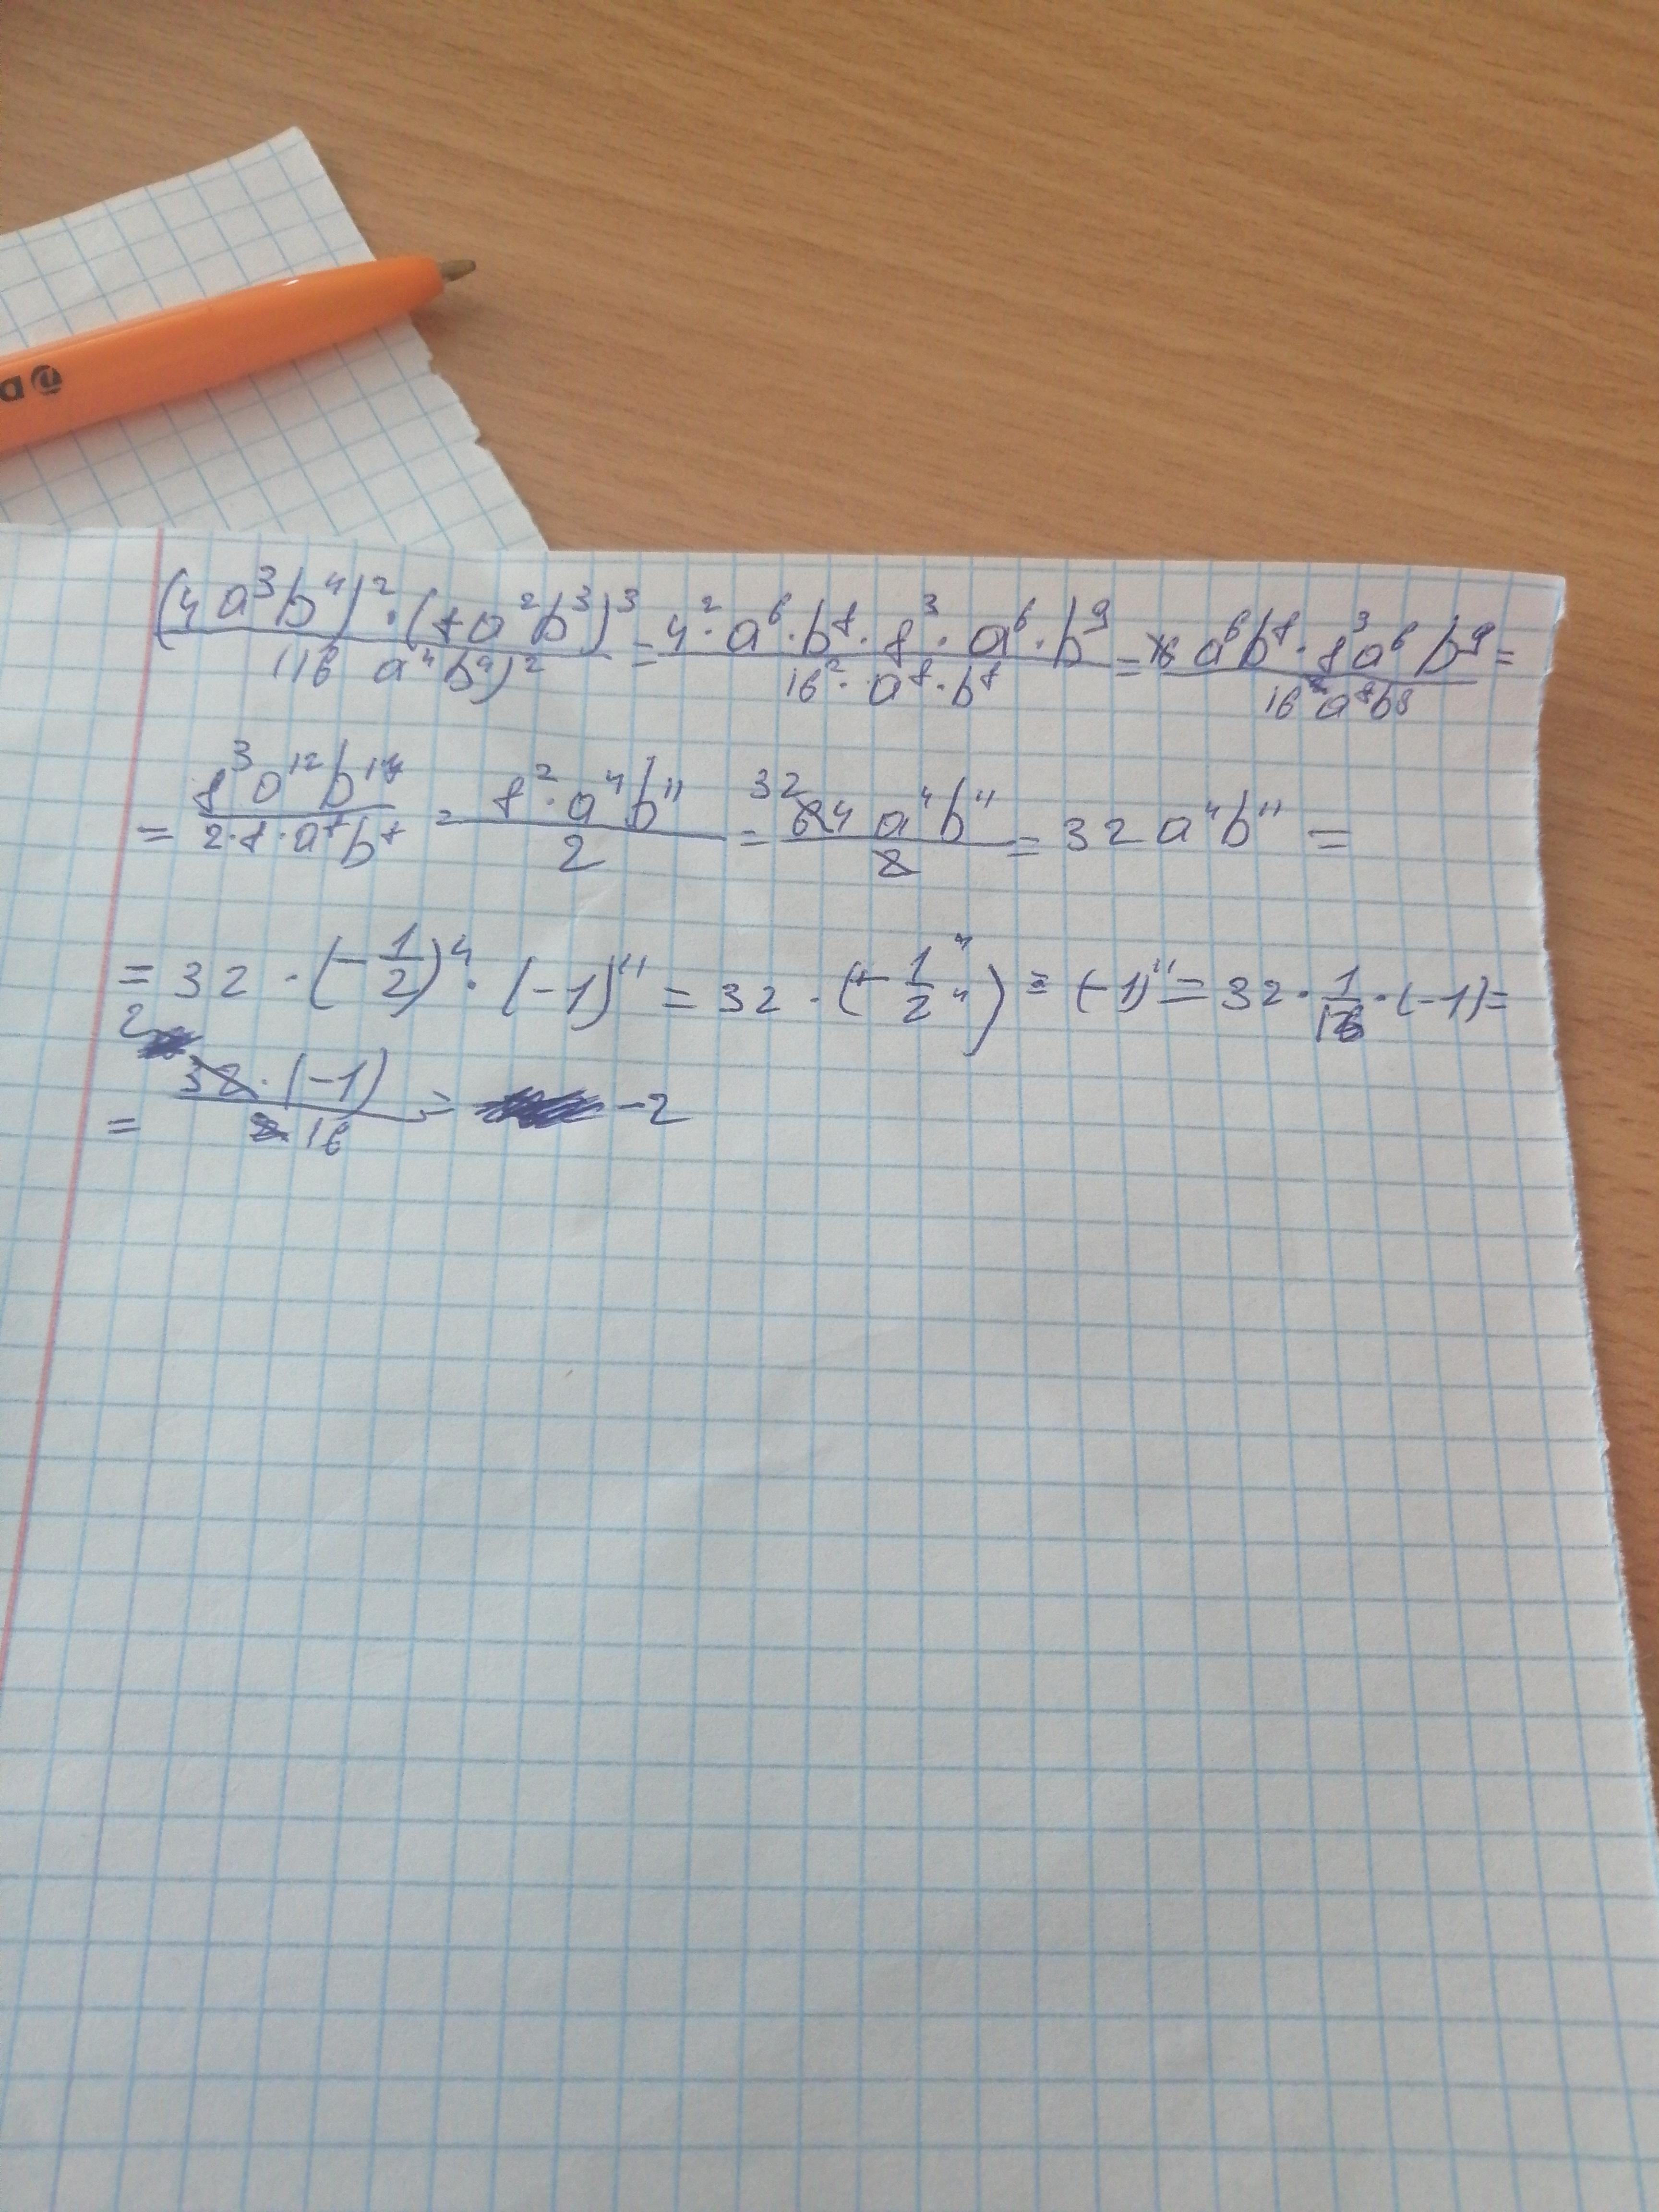 (4a³b⁴)²·(8a²b³)³/(16 a⁴b⁴)² = 4²·a⁶·b⁸·8³·a⁶·b⁹/16²·a⁸·b⁸ = 16 a⁶b⁸·8³a⁶b⁹/16²a⁸b⁸ =
= 8³a¹²b¹⁷/2·8·a⁸b⁸ = 8²·a⁴b¹¹/2 = 32 64 a⁴b¹¹/2 = 32a⁴b¹¹ =
= 32·(-1/2)⁴·(-1)¹¹ = 32·(-1⁴/2⁴)·(-1)¹¹ = 32·1/16·(-1) =
= 2 32·(-1)/16 = -2